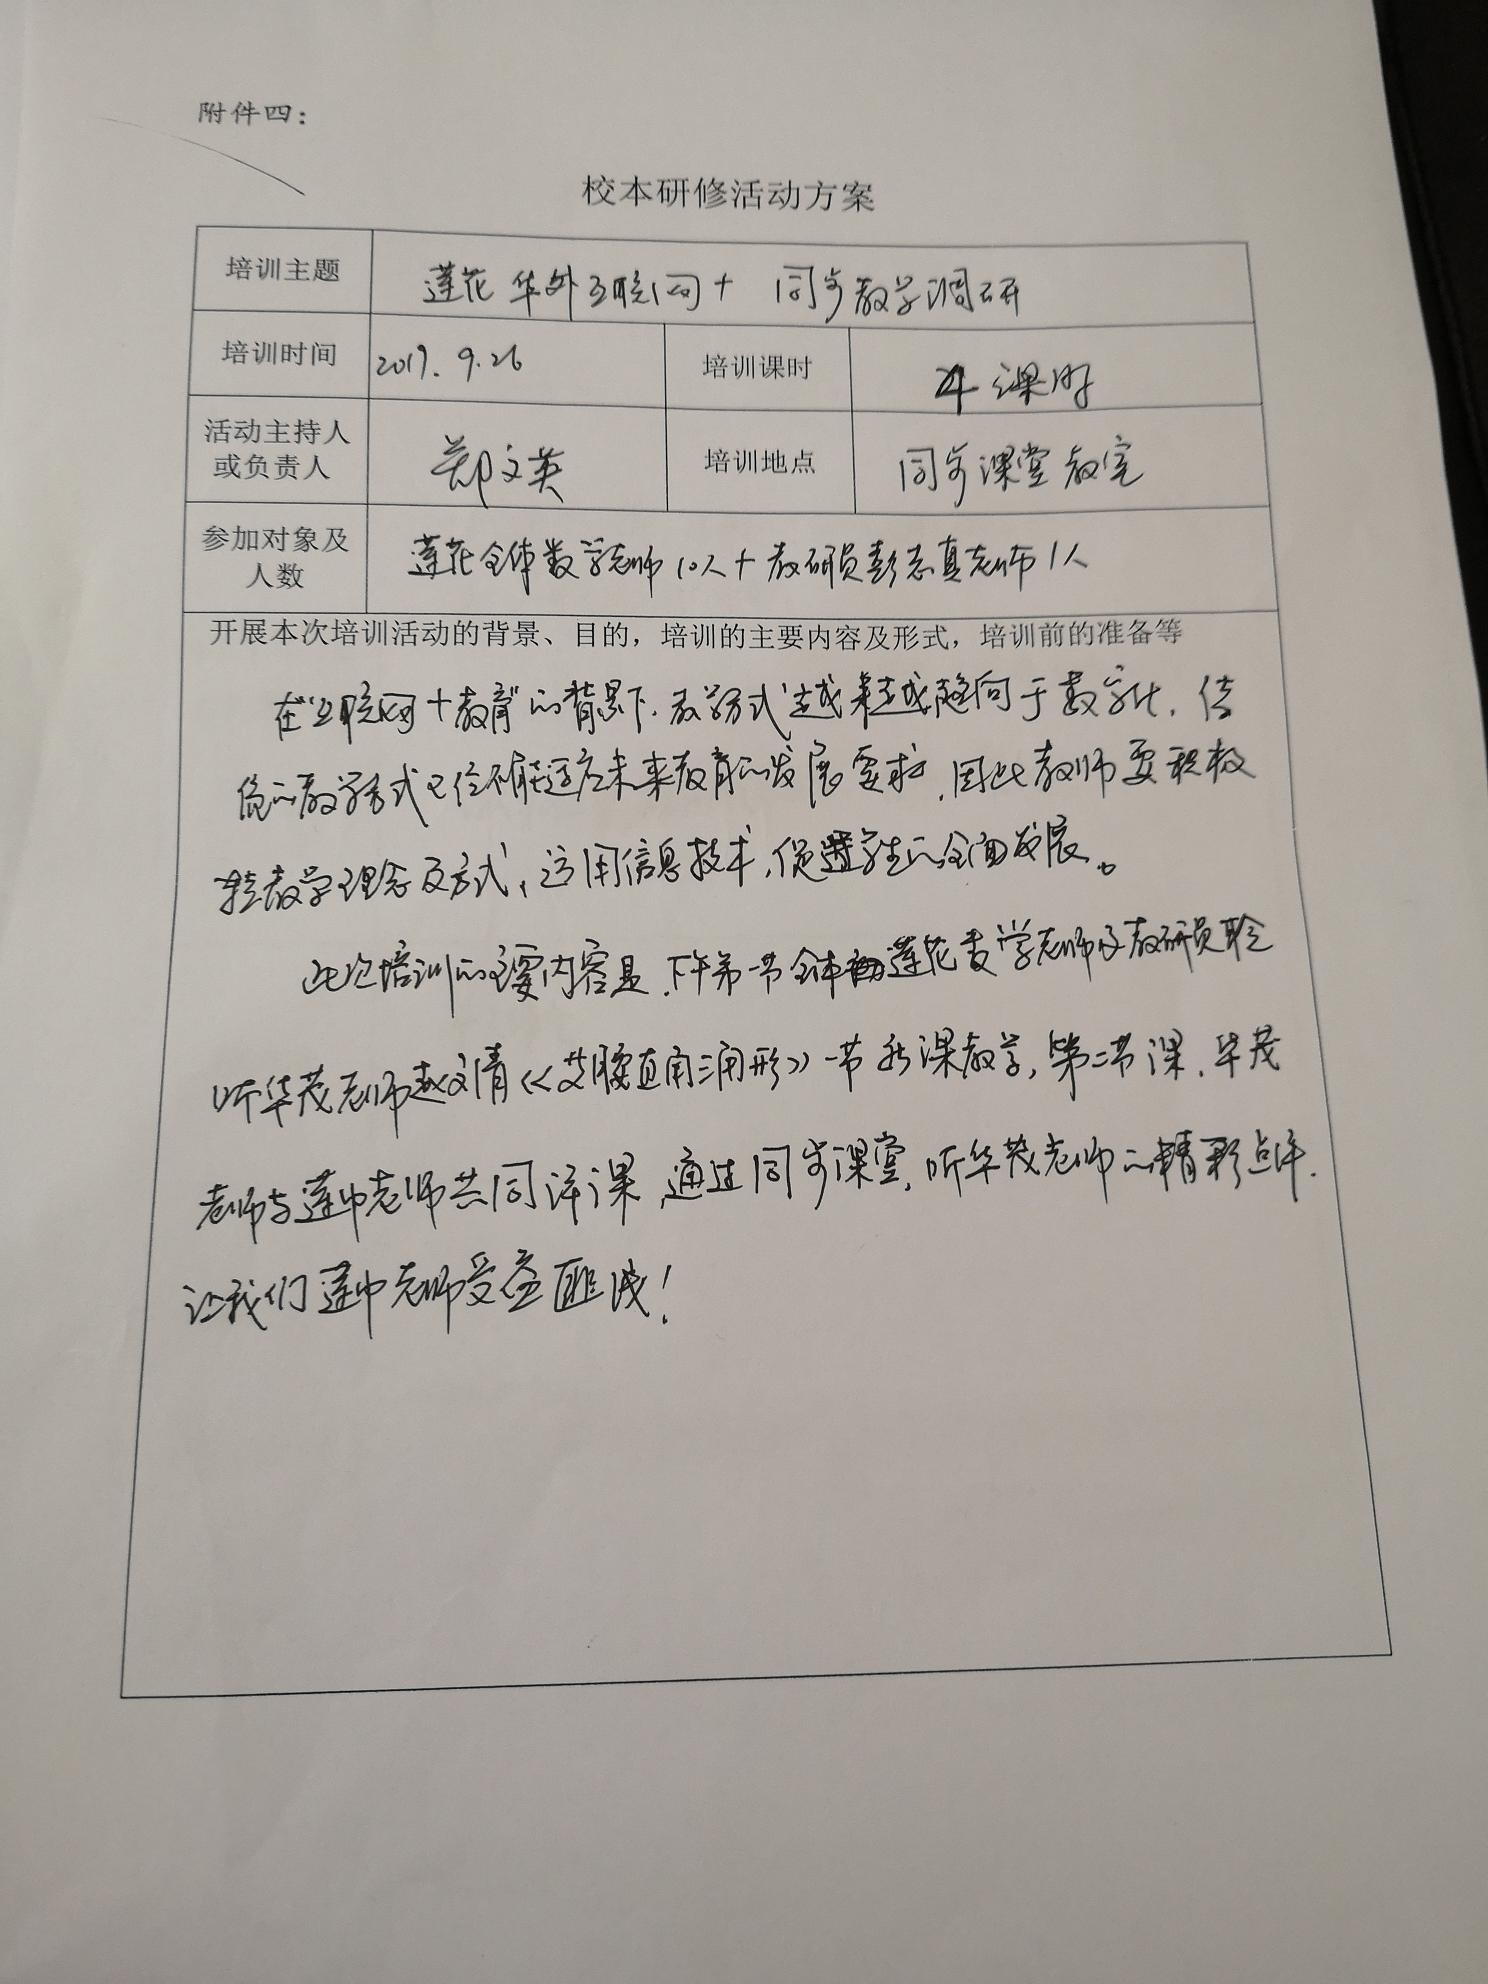 附件四：
校本研修活动方案
培训主题 莲花华外互联网+ 同步教学调研
培训时间 2019.9.26 培训课时 4课时
活动主持人
或负责人 郑文英 培训地点 同步课堂教室
参加对象及
人数 莲花全体数学老师10人+教研员彭志真老师1人
开展本次培训活动的背景、目的，培训的主要内容及形式，培训前的准备等
在“互联网+教育”的背景下，教学方式越来越趋向于数字化，传
统的教学方式已经不能适应未来教育的发展要求，因此教师要积极
教学理念及方式，运用信息技术，促进学生的全面发展。
此次培训的主要内容是，下午第一节全体莲花数学老师及教研员聆
听华茂老师赵文清《等腰直角三角形》一节新课教学，第二节课，华茂
老师与莲中老师共同评课，通过同步课堂，听华茂老师的精彩点评，
让我们莲中老师受益匪浅！